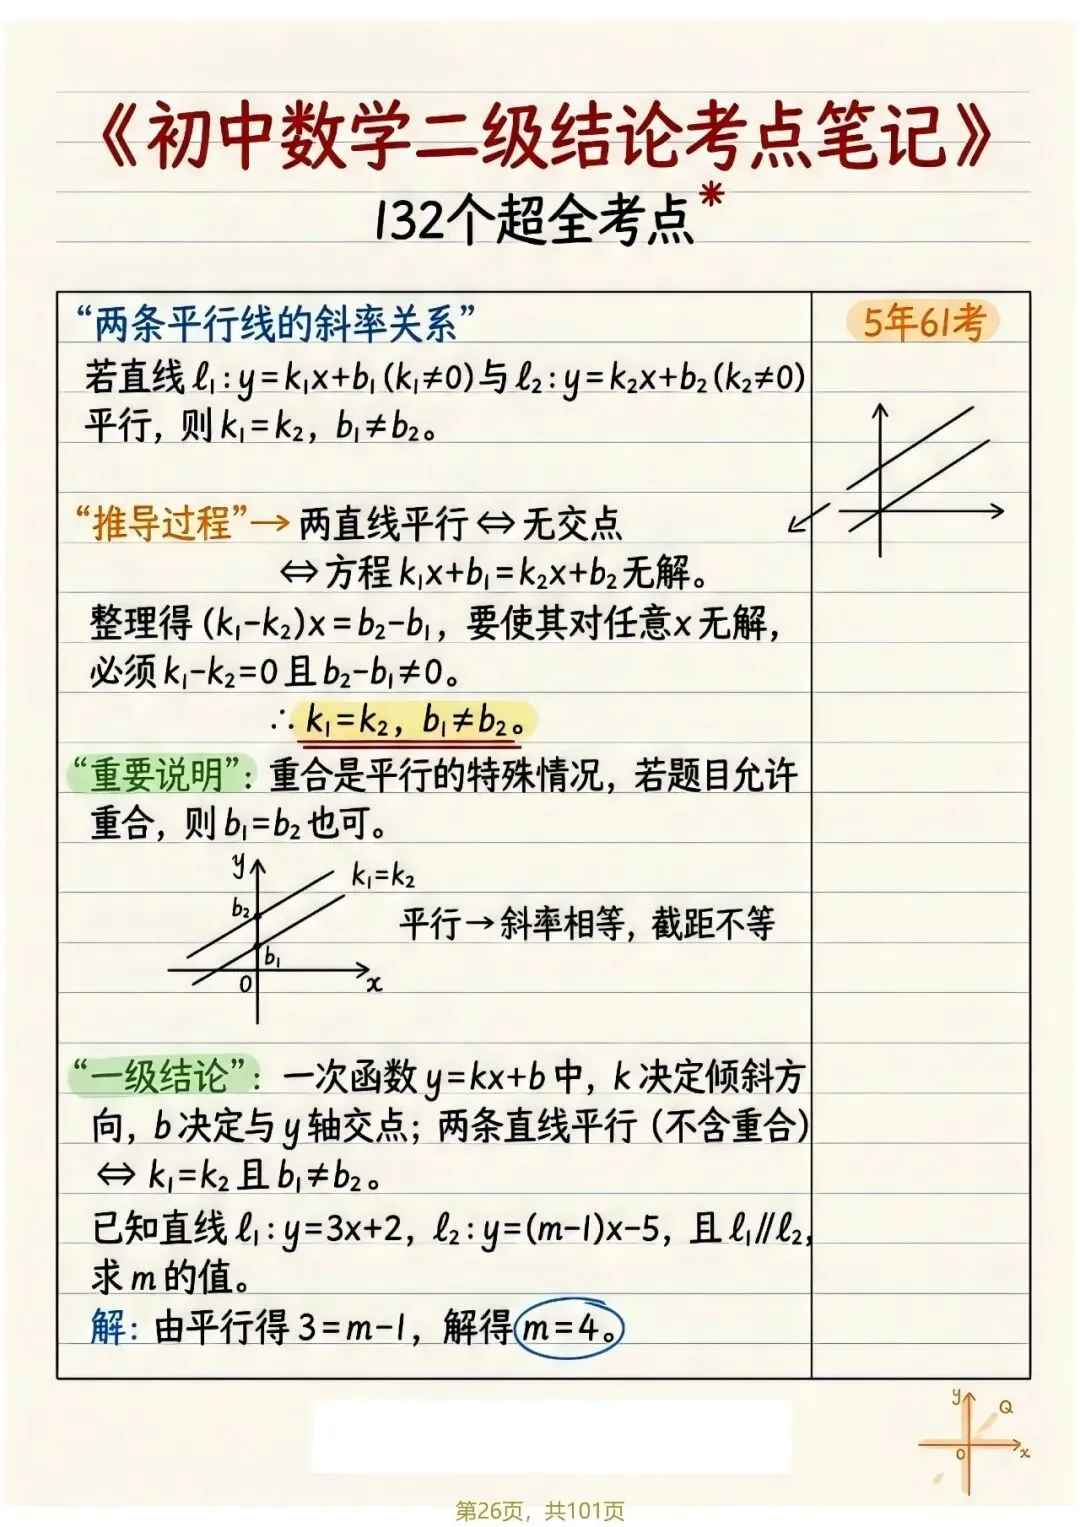 《初中数学二级结论考点笔记》
132个超全考点*
“两条平行线的斜率关系”
5年61考
若直线 ℓ₁:y=k₁x+b₁(k₁≠0)与 ℓ₂:y=k₂x+b₂(k₂≠0)
平行，则 k₁=k₂，b₁≠b₂。
“推导过程”→ 两直线平行⇔无交点
⇔方程 k₁x+b₁=k₂x+b₂无解。
整理得 (k₁-k₂)x=b₂-b₁，要使其对任意x无解，
必须 k₁-k₂=0 且 b₂-b₁≠0。
∴ k₁=k₂，b₁≠b₂。
“重要说明”：重合是平行的特殊情况，若题目允许
重合，则 b₁=b₂ 也可。
y
k₁=k₂
b₂
平行→斜率相等，截距不等
b₁
O
x
“一级结论”：一次函数 y=kx+b 中，k 决定倾斜方
向，b 决定与 y 轴交点；两条直线平行（不含重合）
⇔ k₁=k₂ 且 b₁≠b₂。
已知直线 ℓ₁:y=3x+2，ℓ₂:y=(m-1)x-5，且 ℓ₁∥ℓ₂，
求 m 的值。
解：由平行得 3=m-1，解得 m=4。
y
Q
O
x
第26页，共101页